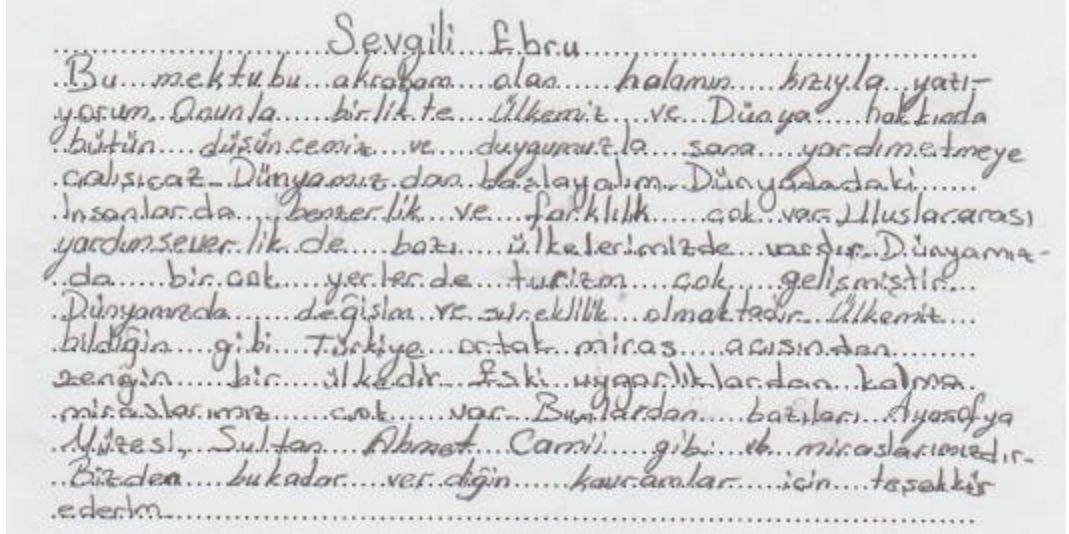 Sevgili Ebru
Bu mektubu akrabam olan halamın kızıyla yazı-
yorum. Onunla birlikte Ülkemiz ve Dünya hakkında
bütün düşüncemiz ve duygumuzla sana yardımetmeye
çalışıcaz. Dünyamızdan başlayalım. Dünyadadaki
İnsanlarda benzerlik ve farklılık çok var. Uluslararası
yardımseverlik de bazı ülkelerimizde vardır. Dünyamız-
da birçok yerlerde turizm çok gelişmiştir.
Dünyamızda değişim ve süreklilik olmaktadır. Ülkemiz
bildiğin gibi Türkiye ortak miras açısından
zengin bir ülkedir. Eski uygarlıklardan kalma
miraslarımız çok var. Bunlardan bazıları Ayasofya
Müzesi, Sultan Ahmet Camii gibi miraslarımızdır.
Bizden bukadar verdiğin kavramlar için teşekkür
ederim